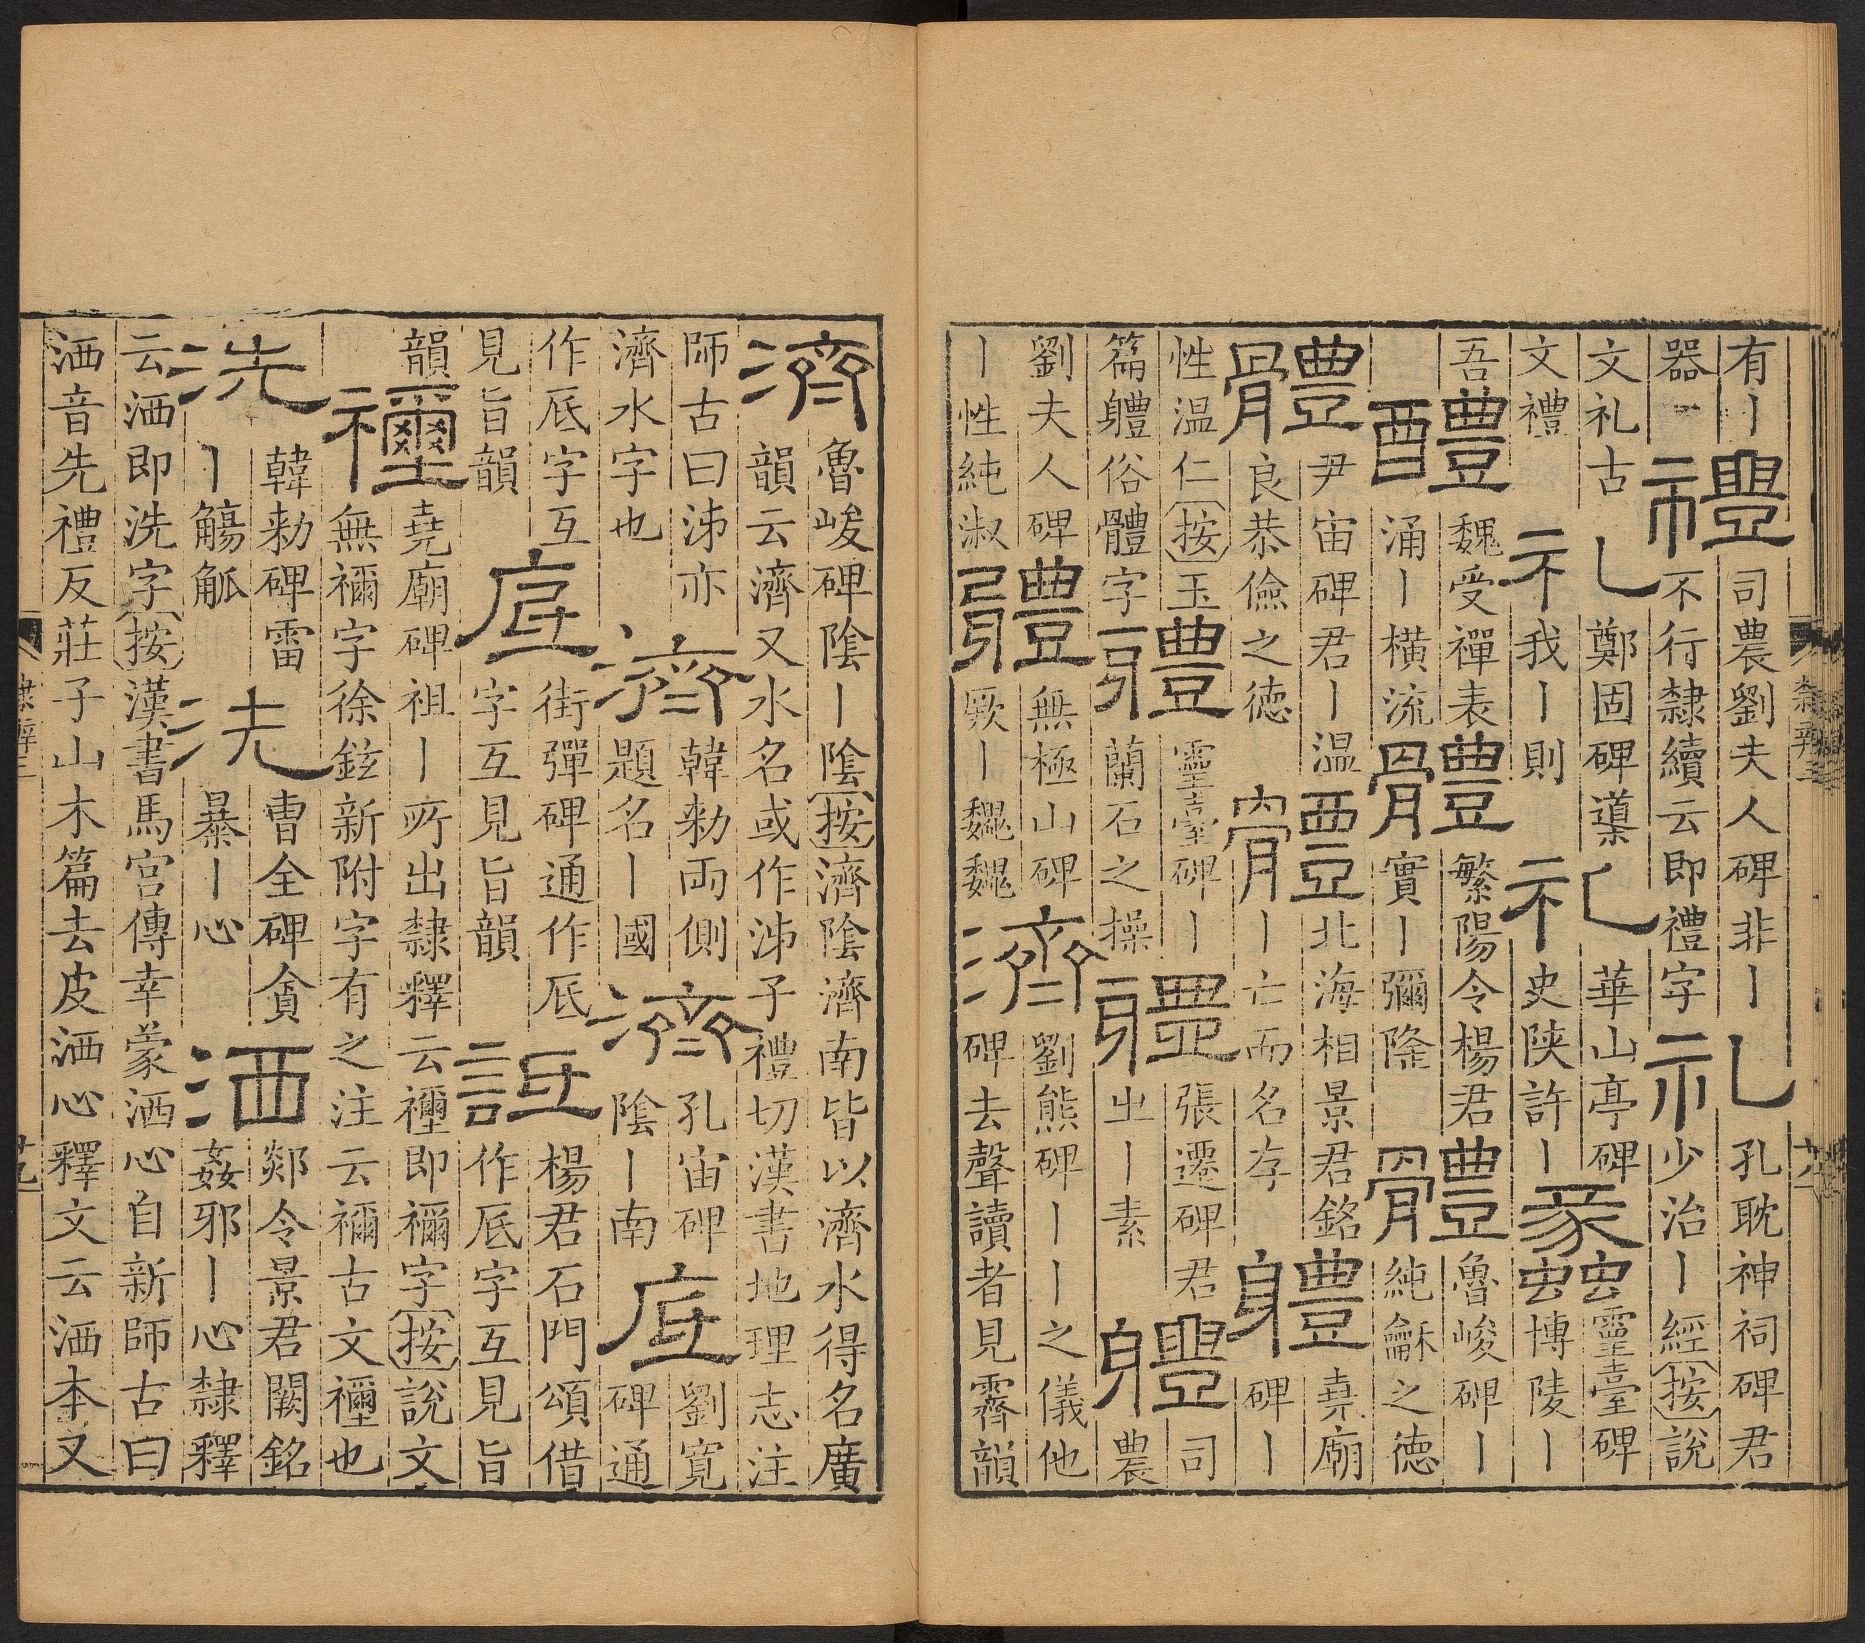 有丨器禮司農劉夫人碑非丨不行隸續云即禮字礼孔耽神祠碑君少治丨經按說
文礼古文禮礼鄭固碑導我丨則礼華山亭碑史陝許丨蠡靈臺碑博陵丨
吾醴魏受禪表涌丨橫流體繁陽令楊君實丨彌隆體魯峻碑丨純龢之德
體尹宙碑君丨溫良恭儉之德體北海相景君銘丨亡而名存軆堯廟碑丨
性溫仁按玉篇軆俗體字軆靈臺碑丨蘭石之操軆張遷碑君㞢丨素軆司農
劉夫人碑丨性純淑體無極山碑厥丨魏魏濟劉熊碑丨丨之儀他碑去聲讀者見霽韻
濟魯峻碑陰丨陰按濟陰濟南皆以濟水得名廣韻云濟又水名或作泲子禮切漢書地理志注
師古曰泲亦濟水字也濟韓勑兩側題名丨國濟孔宙碑陰丨南底劉寬碑通
作厎字互見旨韻底街彈碑通作厎字互見旨韻詆楊君石門頌借作厎字互見旨
韻禋堯廟碑祖丨所出隸釋云禋即禰字按說文無禰字徐鉉新附字有之注云禰古文禋也
洗韓勑碑雷丨觴觚洗曹全碑貪暴丨心洒郯令景君闕銘姦邪丨心隸釋
云洒即洗字按漢書馬宮傳幸蒙洒心自新師古曰洒音先禮反莊子山木篇去皮洒心釋文云洒本又